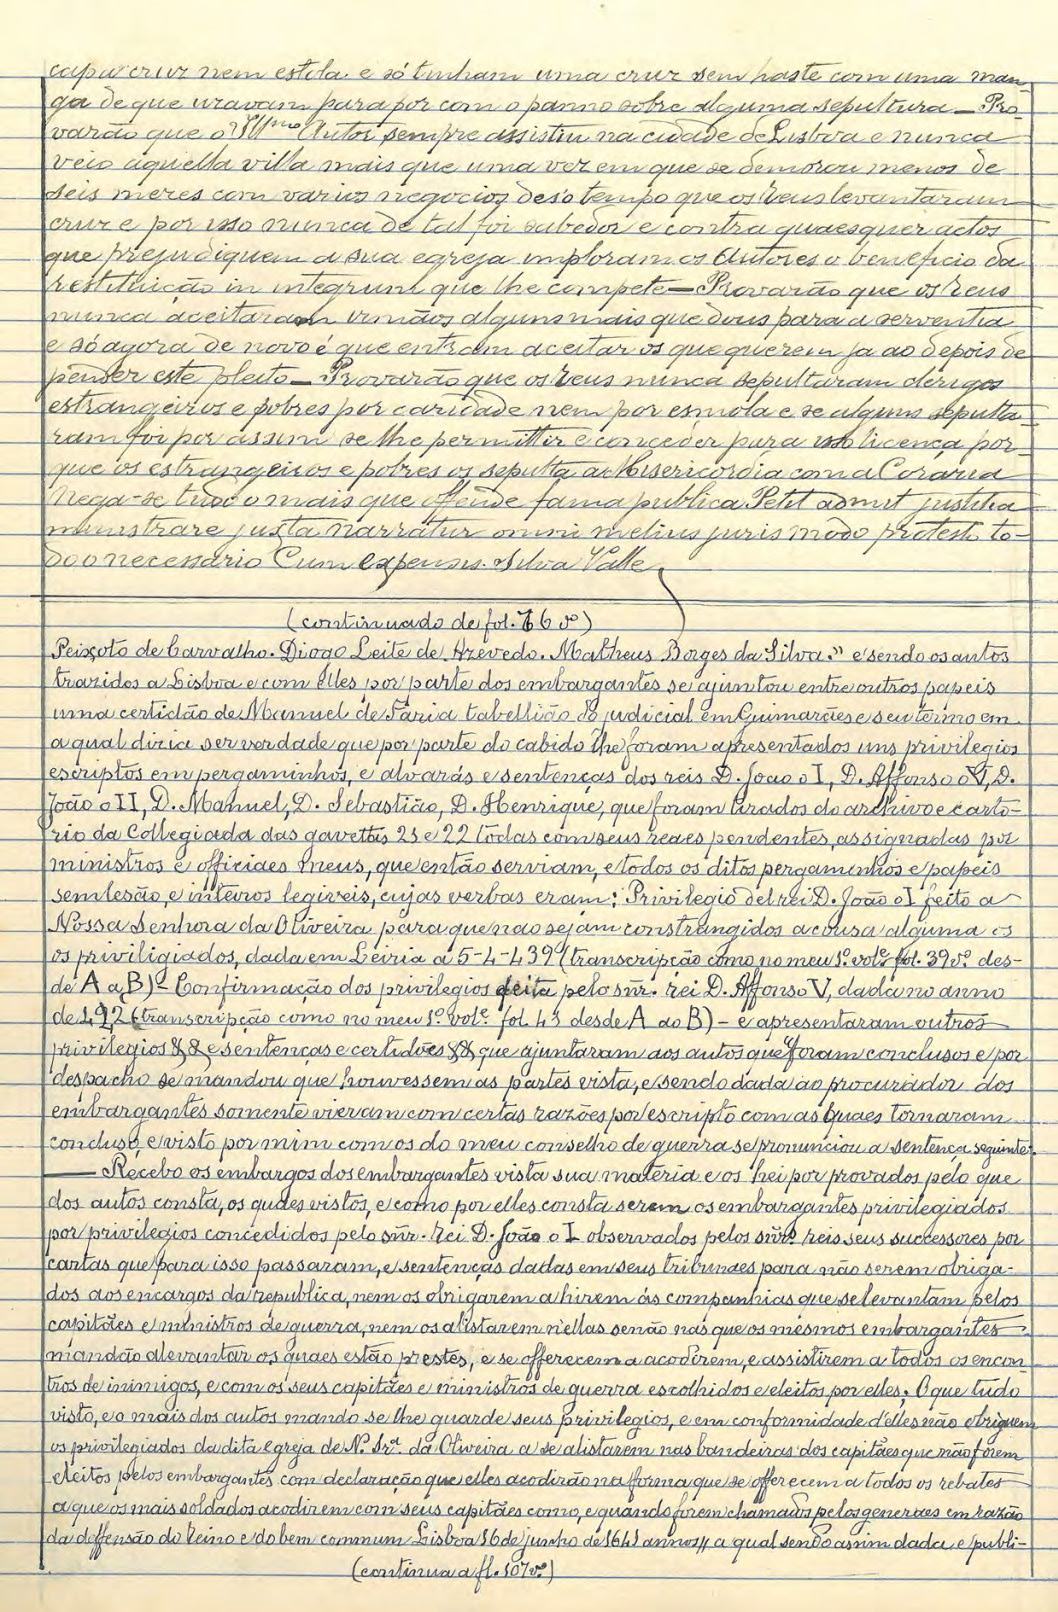 capa cruz nem estola. e só tinham uma cruz sem haste com uma man-
ga de que uzavam para por com o panno sobre alguma sepultura — Pro-
varão que o Illmo Autor sempre assistiu na cidade de Lisboa e nunca
veio aquella villa mais que uma vez em que se demorou menos de
seis mezes com varios negocios des'o tempo que os reus levantaram
cruz e por isso nunca de tal foi sabedor e contra quaesquer actos
que prejudiquem a sua egreja imploram os Autores o beneficio da
restituição in integrum que lhe compete — Provarão que os reus
nunca aceitaram irmãos alguns mais que dous para a serventia
e só agora de novo é que entram aceitar os que querem ja ao depois de
pender este pleito — Provarão que os reus nunca sepultaram clerigos
estrangeiros e pobres por caridade nem por esmola e se alguns sepulta-
ram foi por assim se lhe permittir e conceder para isso licença por-
que os estrangeiros e pobres os sepulta a Misericordia com a Coraria
Nega-se tudo o mais que offende fama publica Petit admit justitia
ministrare juxta narratur omni melius juris modo protesta to-
do o necessario Cum expensis. Silva Valle
(continuado de fol. 66 vo)
Peixoto de Carvalho. Diogo Leite de Azevedo. Matheus Borges da Silva." e sendo os autos
trazidos a Lisboa e com elles por parte dos embargantes se ajuntou entre outros papeis
uma certidão de Manuel de Faria tabellião do judicial em Guimarães e seu termo em
a qual dizia ser verdade que por parte do cabido lhe foram apresentados uns privilegios
escriptos em pergaminhos, e alvarás e sentenças dos reis D. João o I, D. Affonso o V, D.
João o II, D. Manuel, D. Sebastião, D. Henrique, que foram tirados do archivo e carto-
rio da Collegiada das gavettas 23 e 22 todas com seus reaes pendentes, assignadas por
ministros e officiaes meus, que então serviam, e todos os ditos pergaminhos e papeis
sem lesão, e inteiros legiveis, cujas verbas eram: Privilegio del rei D. João o I feito a
Nossa Senhora da Oliveira para que não sejam constrangidos a cousa alguma os
os priviligiados, dada em Leiria a 5-4-439 (transcripção como no meu 1º. vole. fol. 39 vo. des-
de A a B) — Confirmação dos privilegios feita pelo snr. rei D. Affonso V, dada no anno
de 1,92 (transcripção como no meu 1º. vole. fol. 43 desde A ao B) — e apresentaram outros
privilegios && e sentenças e certidões && que ajuntaram aos autos que foram conclusos e por
despacho se mandou que houvessem as partes vista, e sendo dada ao procurador dos
embargantes somente vieram com certas razões por escripto com as quaes tornaram
concluso, e visto por mim com os do meu conselho de guerra se pronunciou a sentença seguinte:
— Recebo os embargos dos embargantes vista sua materia e os hei por provados pelo que
dos autos consta, os quaes vistos, e como por elles consta serem os embargantes privilegiados
por privilegios concedidos pelo snr. rei D. João o I observados pelos snrs. reis seus successores por
cartas que para isso passaram, e sentenças dadas em seus tribunaes para não serem obriga-
dos aos encargos da republica, nem os obrigarem a hirem ás companhias que se levantam pelos
capitães e ministros de guerra, nem os alistarem n'ellas senão nas que os mesmos embargantes
mandão alevantar os quaes estão prestes, e se offerecem a acodirem, e assistirem a todos os encon-
tros de inimigos, e com os seus capitães e ministros de guerra escolhidos e eleitos por elles; O que tudo
visto, e o mais dos autos mando se lhe guarde seus privilegios, e em conformidade d'elles não obriguem
os privilegiados da dita egreja de N. Sra. da Oliveira a se alistarem nas bandeiras dos capitães que não forem
eleitos pelos embargantes com declaração que elles acodirão na forma que se offerecem a todos os rebates
a que os mais soldados acodirem com seus capitães como, e quando forem chamados pelos generaes em razão
da deffensão do reino e do bem commum Lisboa 16 de junho de 1641 annos,, a qual sendo assim dada e publi-
(continua a fl. 107 vo.)